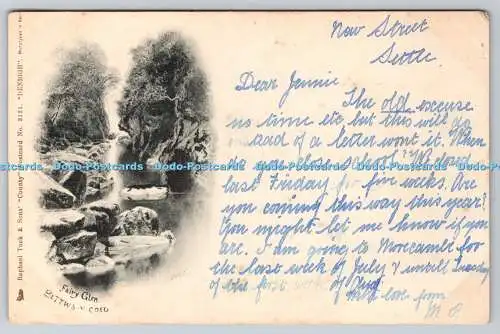 New Street
Settle
Dear Jennie
The old excuse
no time etc but this will do
instead of a letter wont it. When
do you close school? We closed
last Friday for five weeks. Are
you coming this way this year?
You might let me know if you
are. I am going to Morecambe for
the last week of July & untill Tuesday
of the first week of
Much love from
M P
Fairy Glen
BETTWS-Y-COED
Raphael Tuck & Sons' "County" Postcard No. 2151. "DENBIGH".
Dodo-Postcards Dodo-Postcards Dodo-Postcards Dodo-Postcards